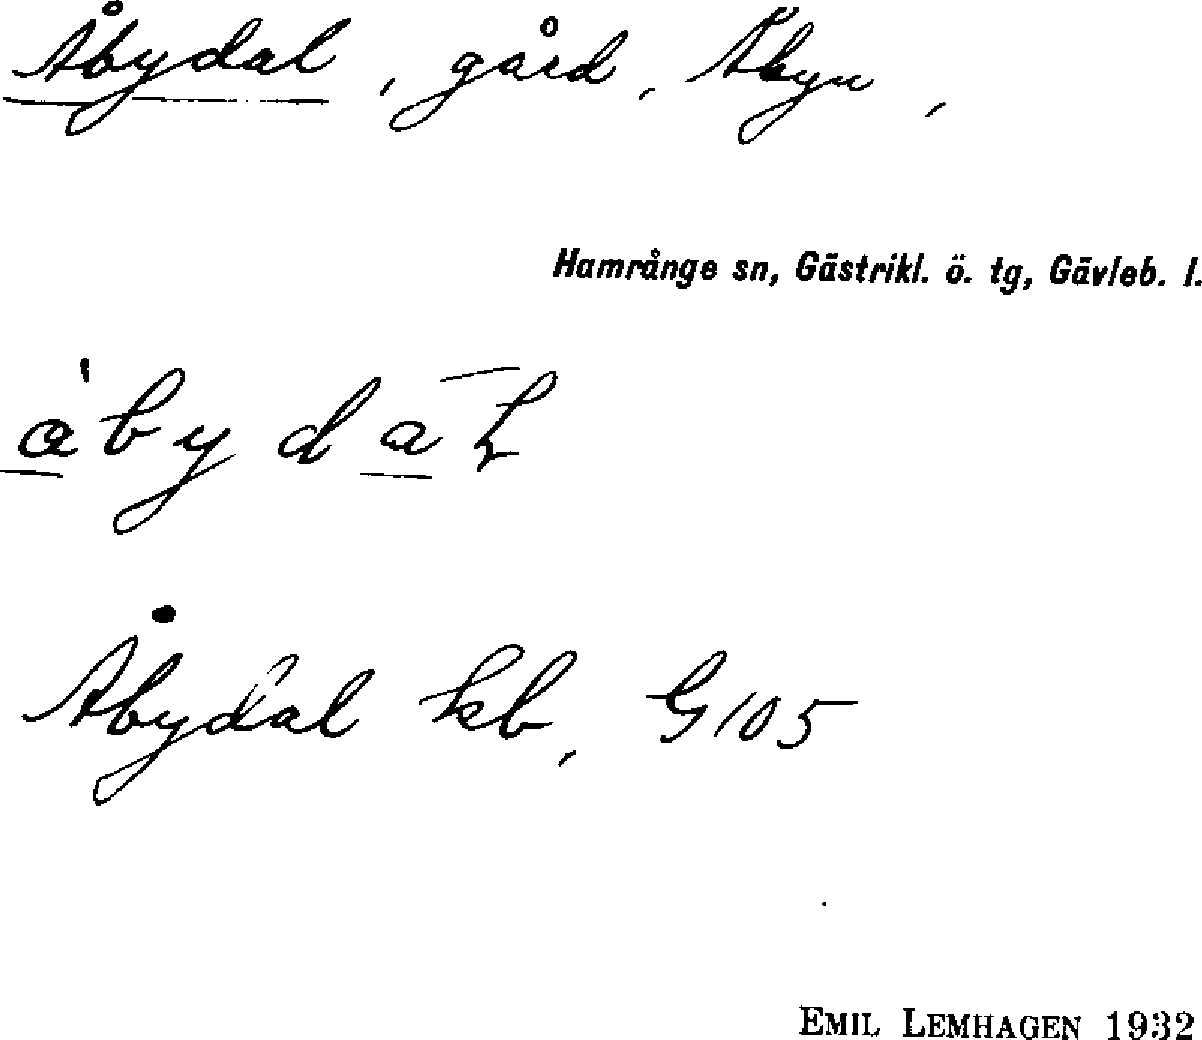 Åbydal, gård, Åbyn,
Hamrånge sn, Gästrikl. ö. tg, Gävleb. l.
åbydal
Åbydal kb, G105
EMIL LEMHAGEN 1932